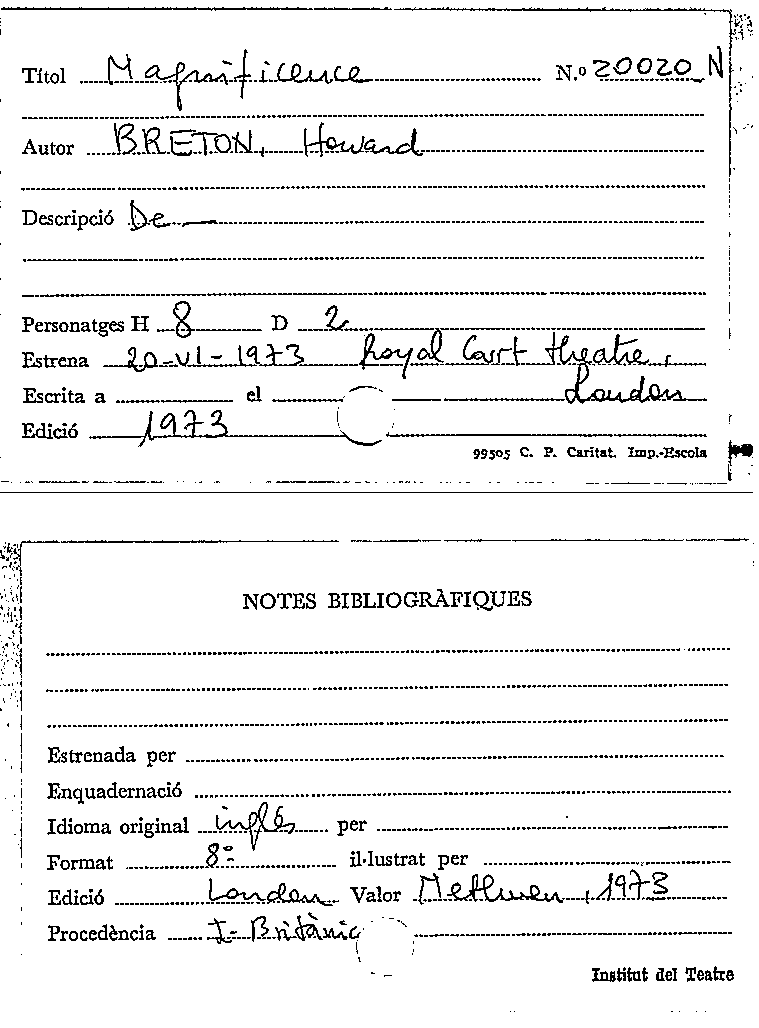 Títol Magnificence N.º 20020 N
Autor BRETON, Howard
Descripció De
Personatges H 8 D 2
Estrena 20-VI-1973 Royal Court theatre,
Escrita a el London
Edició 1973
99505 C. P. Caritat. Imp.-Escola
NOTES BIBLIOGRÀFIQUES
Estrenada per
Enquadernació
Idioma original inglés per
Format 8º il·lustrat per
Edició London Valor Methuen, 1973
Procedència I. Britànic
Institut del Teatre